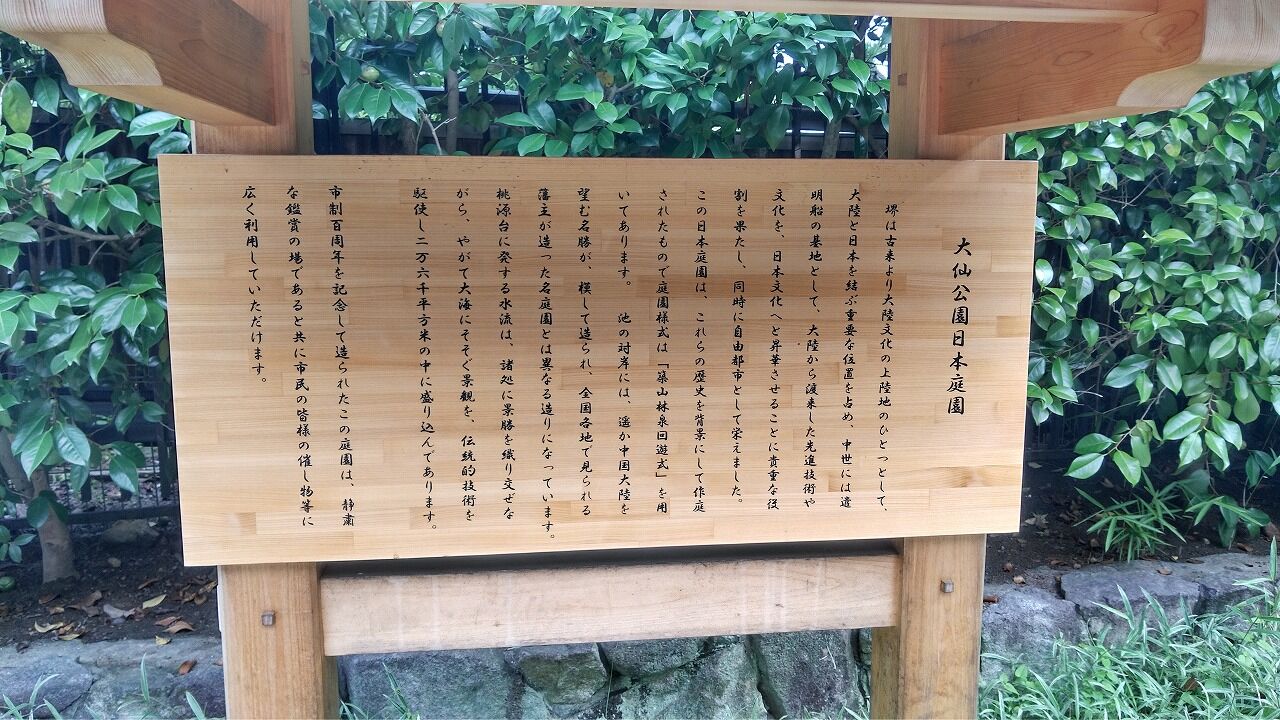 大仙公園日本庭園
堺は古来より大陸文化の上陸地のひとつとして、
大陸と日本を結ぶ重要な位置を占め、中世には遣
明船の基地として、大陸から渡来した先進技術や
文化を、日本文化へと昇華させることに貴重な役
割を果たし、同時に自由都市として栄えました。
この日本庭園は、これらの歴史を背景にして作庭
されたもので庭園様式は「築山林泉回遊式」を用
いてあります。　池の対岸には、遥か中国大陸を
望む名勝が、模して造られ、全国各地で見られる
藩主が造った名庭園とは異なる造りになっています。
桃源台に発する水流は、諸処に景勝を織り交ぜな
がら、やがて大海にそそぐ景観を、伝統的技術を
駆使し二万六千平方米の中に盛り込んであります。
市制百周年を記念して造られたこの庭園は、静粛
な鑑賞の場であると共に市民の皆様の催し物等に
広く利用していただけます。